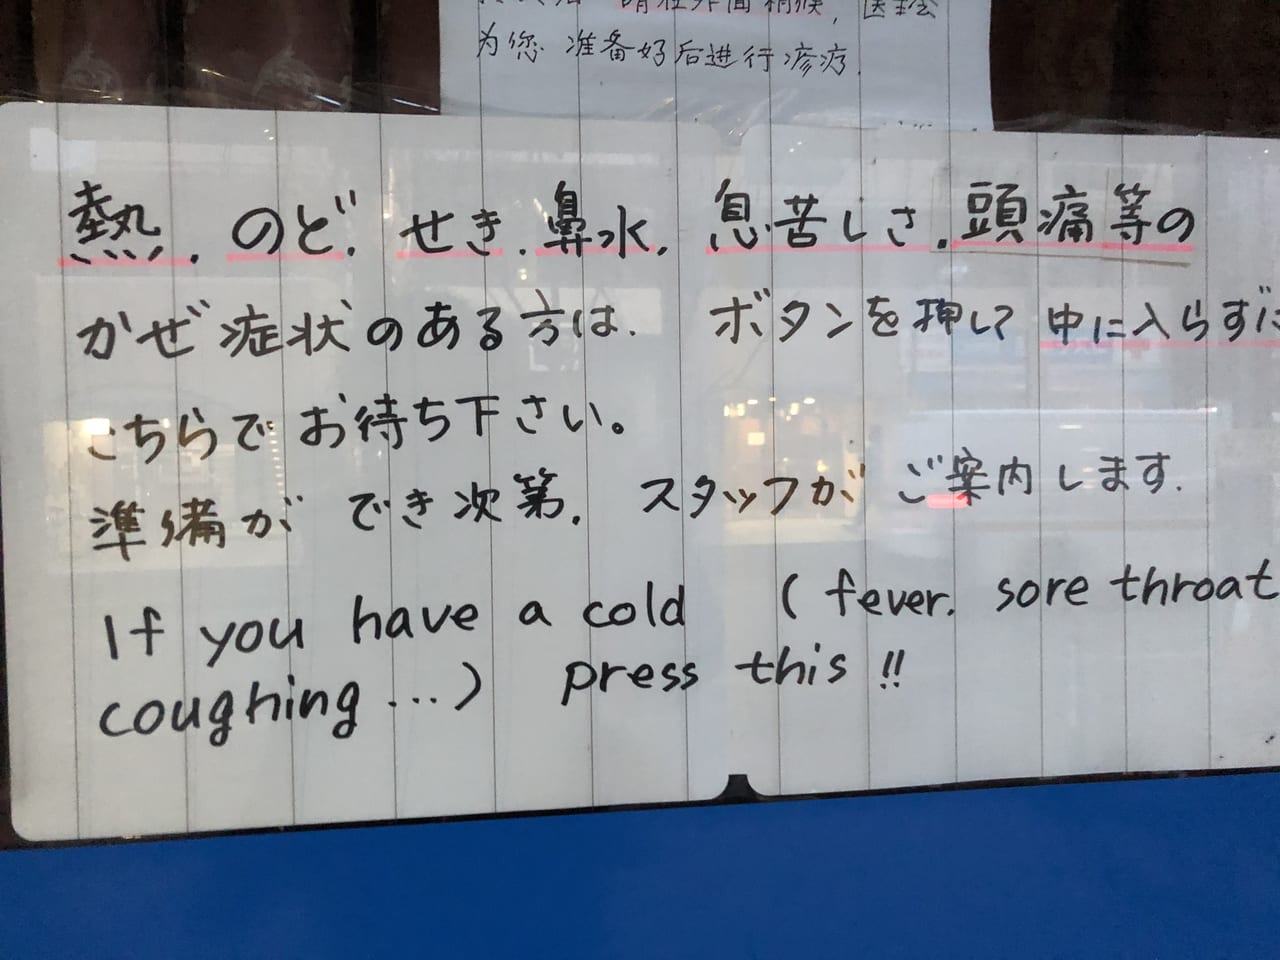 请在外面稍候,
为您准备好后进行疹疗.
熱.のど.せき.鼻水.息苦しさ.頭痛等の
かぜ症状のある方は.ボタンを押して中に入らずに
こちらでお待ち下さい。
準備ができ次第.スタッフがご案内します.
If you have a cold (fever. sore throat
coughing...) press this!!